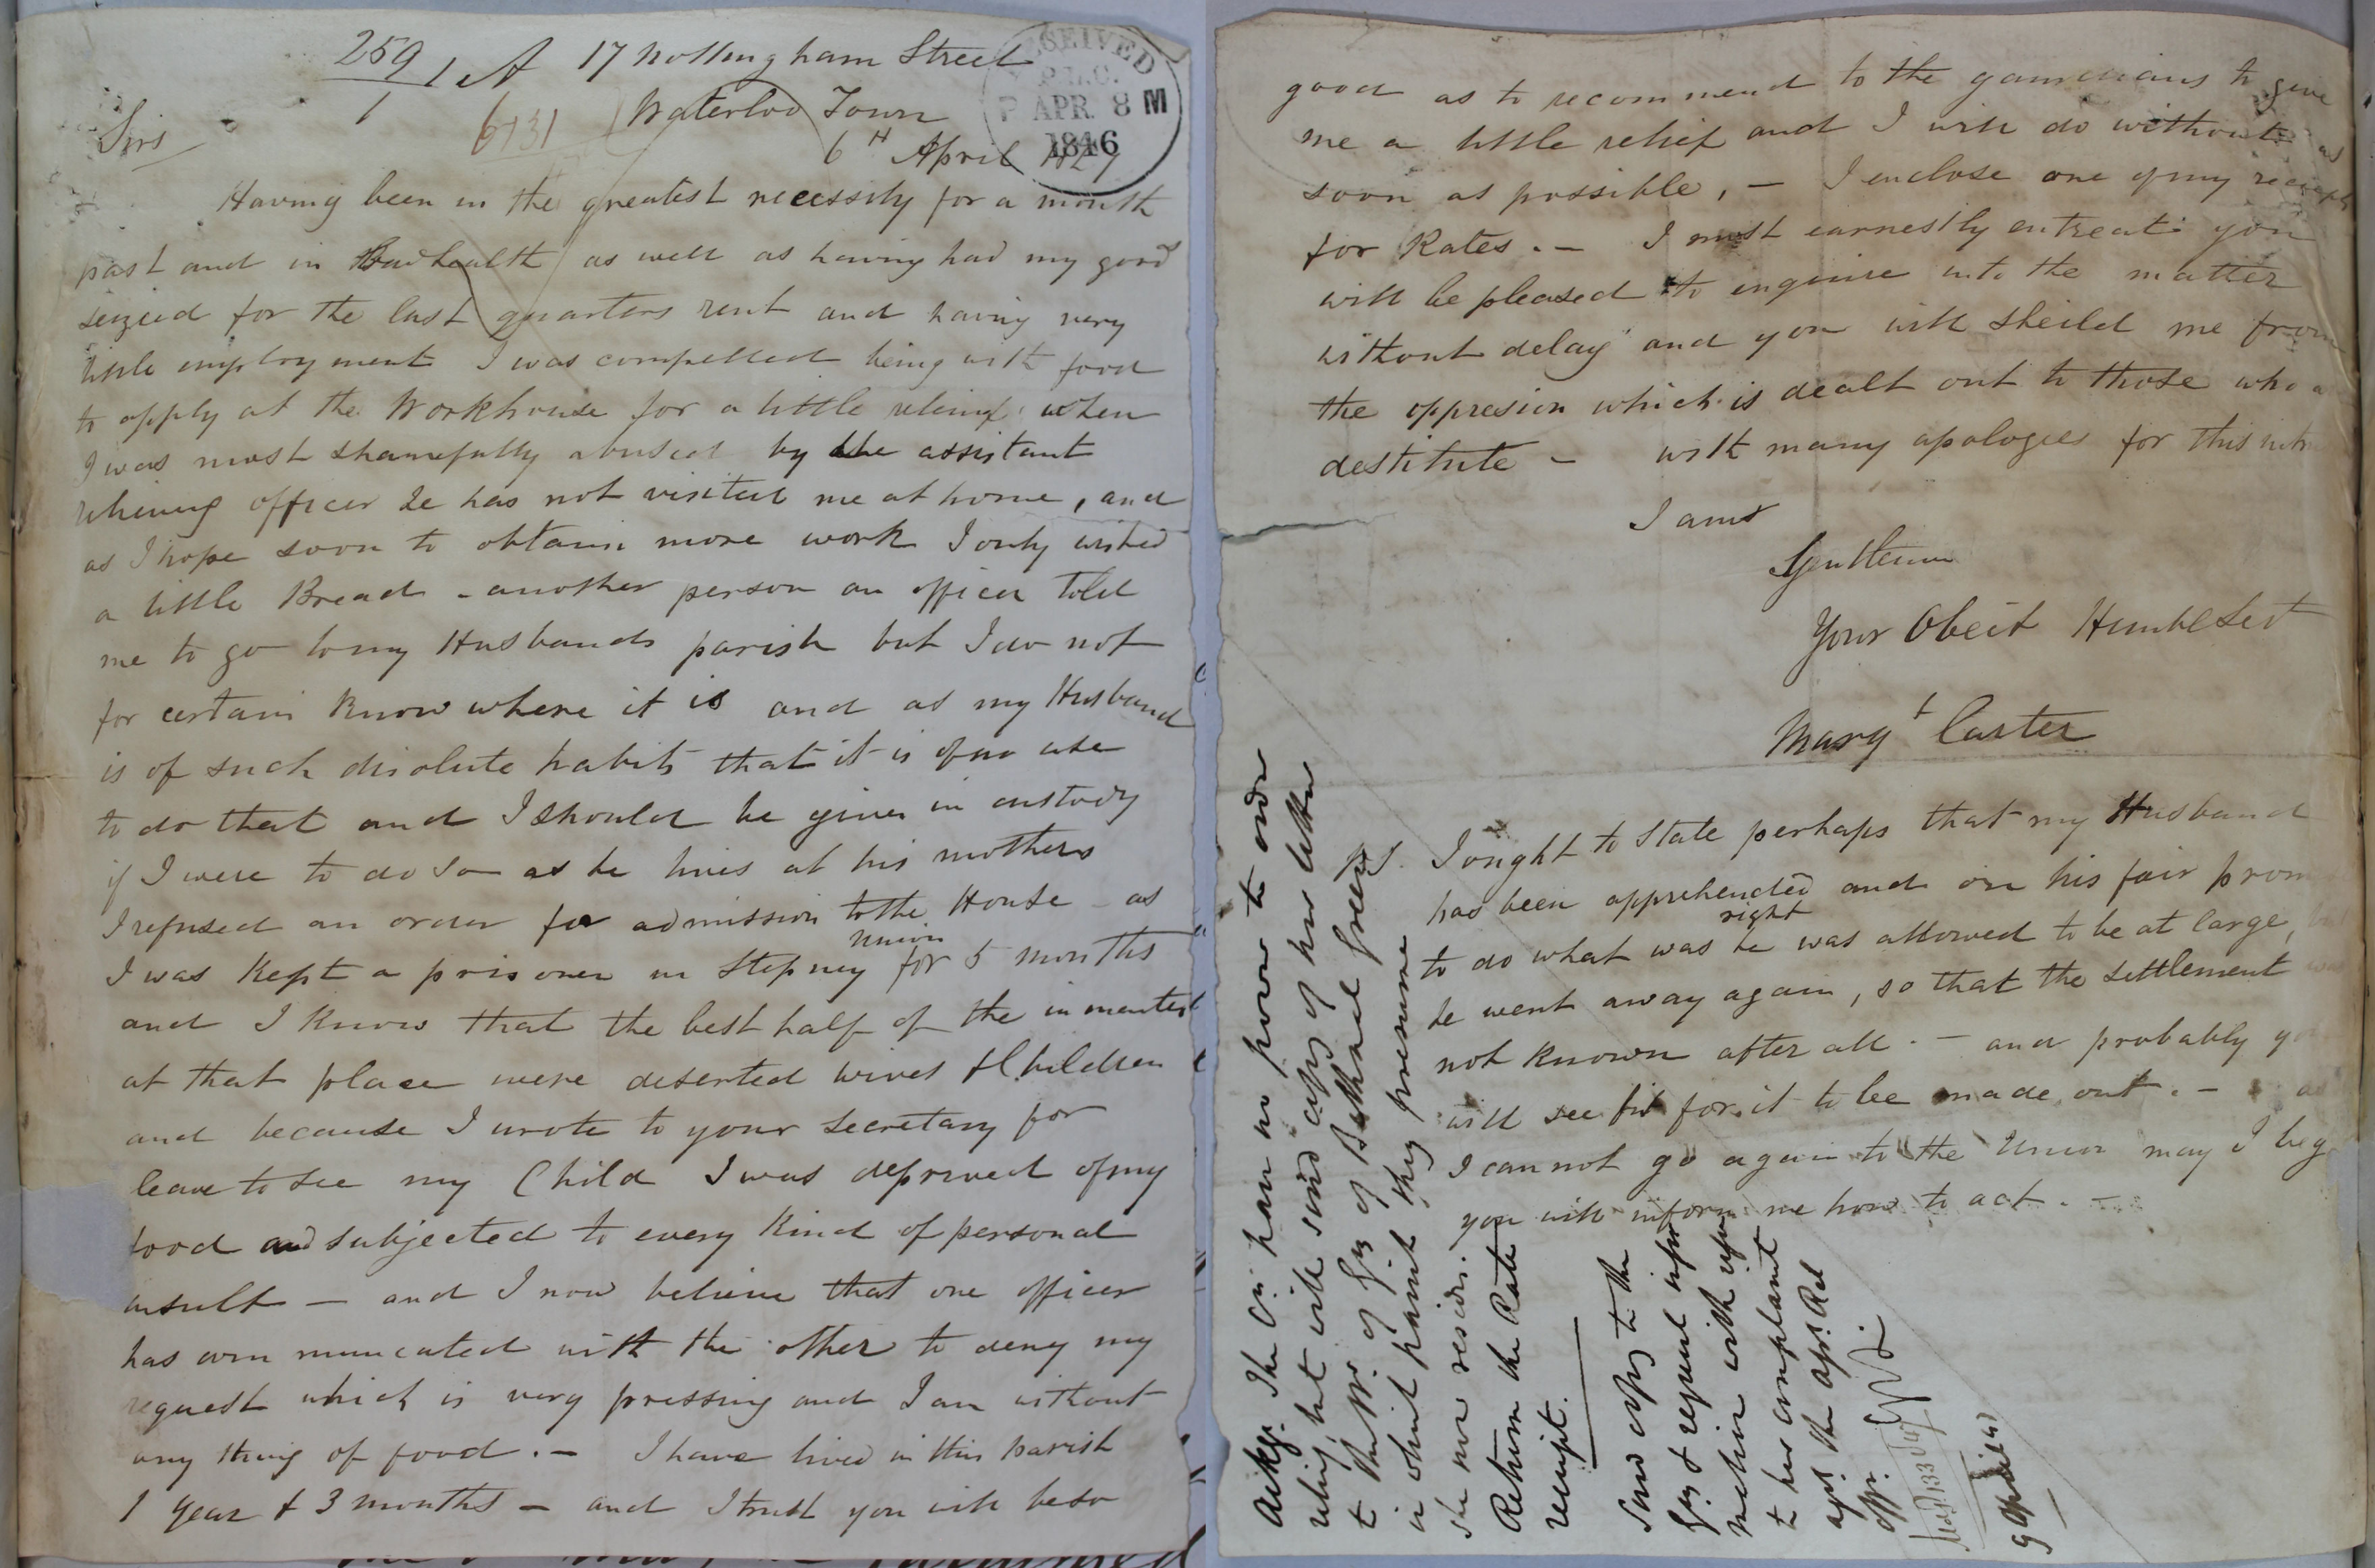 259 / A 17 Nottingham Street
1 6131 Waterloo Town
RECEIVED
P.L.C.
P APR. 8 M
1846
Sirs
6th April
Having been in the greatest necessity for a month
past and in Bad health as well as having had my good
seized for the last quarters rent and having very
little employment I was compelled being with food
to apply at the Workhouse for a little relief when
I was most shamefully abused by the assistant
relieving officer he has not visited me at home, and
as I hope soon to obtain more work I only wished
a little Bread - another person an officer told
me to go to my Husbands parish but I do not
for certain know where it is and as my Husband
is of such disolute habits that it is of no use
to do that and I should be given in custody
if I were to do so as he lives at his mothers
I refused an order for admission to the House - as
I was kept a prisoner in Stepney union for 5 months
and I know that the best half of the inmates
at that place were deserted wives & Children
and because I wrote to your secretary for
leave to see my Child I was deprived of my
food and subjected to every kind of personal
insult — and I now believe that one officer
has communicated with the other to deny my
request which is very pressing and I am without
any thing of food . — I have lived in this parish
1 Year & 3 months — and I trust you will be so
good as to recommend to the gaurdians to give
me a little relief and I will do without as
soon as possible, — I enclose one of my receipts
for Rates . — I most earnestly entreat you
will be pleased to enquire into the matter
without delay and you will sheild me from
the oppresion which is dealt out to those who
destitute — with many apologies for this
I am
Gentlemen
Your Obeit Humbl Set
Margt Carter
P.S. I ought to state perhaps that my Husband
has been apprehended and on his fair
to do what was right he was allowed to be at large,
he went away again, so that the settlement
not known after all . — and probably
will see fit for it to be made out . — as
I cannot go again to the Union may I beg
you will inform me how to act . —
Ackge. The Crs. have no power to order
relief, but will send copy of her letter
to the Bd. of Gns of Bethnal Green
in which parish they presume
she now resides.
Return the Rate
receipt.
Send copy to the
Gns & request
with
to her complaint
agst the asst Rel
offr.
9 April